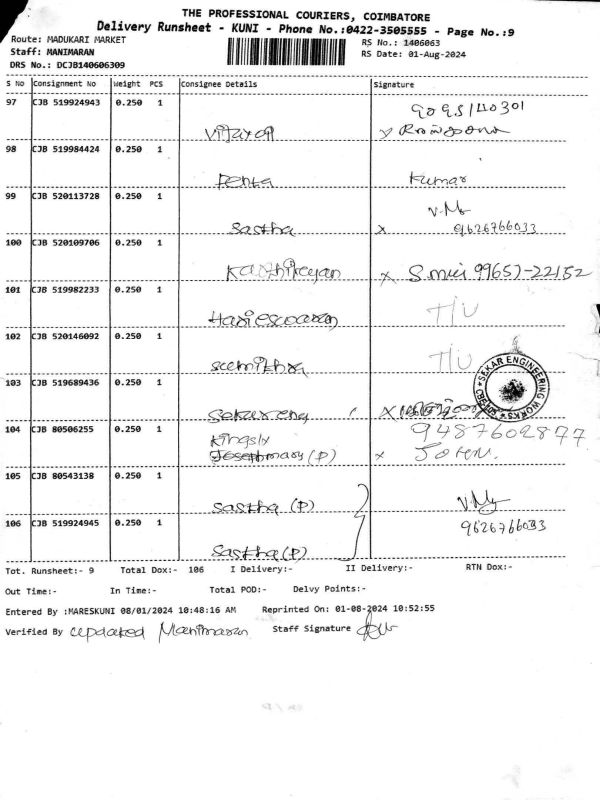 THE PROFESSIONAL COURIERS, COIMBATORE
Delivery Runsheet - KUNI - Phone No.:0422-3505555 - Page No.:9
Route: MADUKARI MARKET
RS No.: 1406063
Staff: MANIMARAN
RS Date: 01-Aug-2024
DRS No.: DCJB140606309
S No Consignment No Weight PCS Consignee Details Signature
97 CJB 519924943 0.250 1
98 CJB 519984424 0.250 1
Penta Kumar
99 CJB 520113728 0.250 1
Sastha x 9626766033
100 CJB 520109706 0.250 1
Karthikeyan x 99657-22152
101 CJB 519982233 0.250 1
Harieswaran T/U
102 CJB 520146092 0.250 1
T/U
SEKAR ENGINEERING WORKS
103 CJB 519689436 0.250 1
104 CJB 80506255 0.250 1
9487602877
Kingsly
Josephmary (P) x John.
105 CJB 80543138 0.250 1
Sastha (P)
106 CJB 519924945 0.250 1
9626766033
Sastha (P)
Tot. Runsheet:- 9 Total Dox:- 106 I Delivery:- II Delivery:- RTN Dox:-
Out Time:- In Time:- Total POD:- Delvy Points:-
Entered By :MARESKUNI 08/01/2024 10:48:16 AM Reprinted On: 01-08-2024 10:52:55
Verified By updated Manimaran Staff Signature